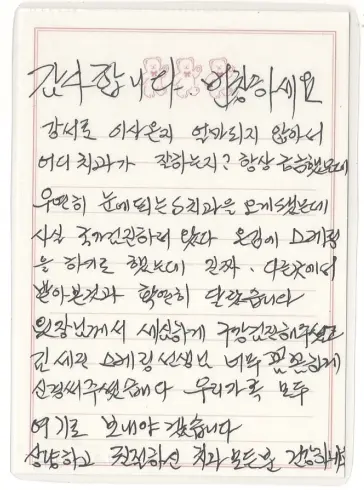 감사합니다. 안녕하세요
강서로 이사온지 얼마되지 않아서
어디 치과가 잘하는지? 항상 궁금했는데
우연히 눈에 띄는 S치과을 오게됐는데
사실 국가검진하러 왔다 온김에 스케링
을 하기로 했는데 진짜. 다른곳에서
받아본것과 확연히 달랐습니다
원장님께서 세심하게 구강검진해주셨고
김세진 스케링선생님 너무 꼼꼼하게
신경써주셨 우리가족 모두
여기로 보내야 겠습니다
상냥하고 친절하신 치과 모든분 건강하세요